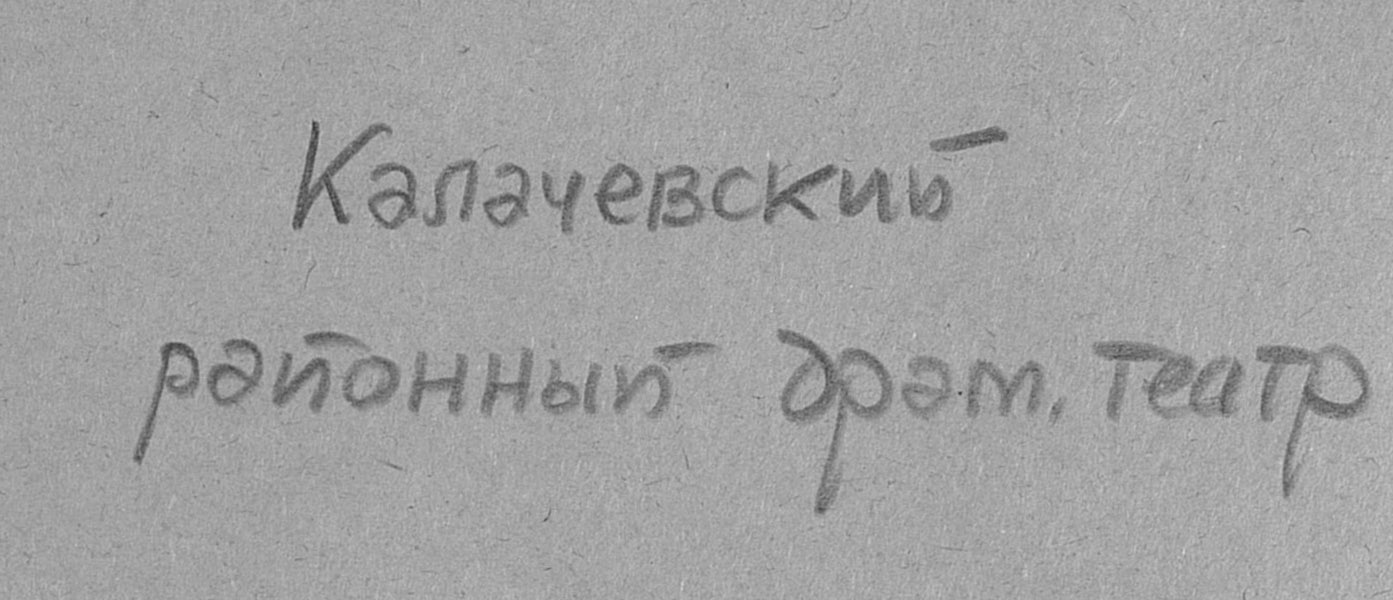 Калачевский
районный драм. театр